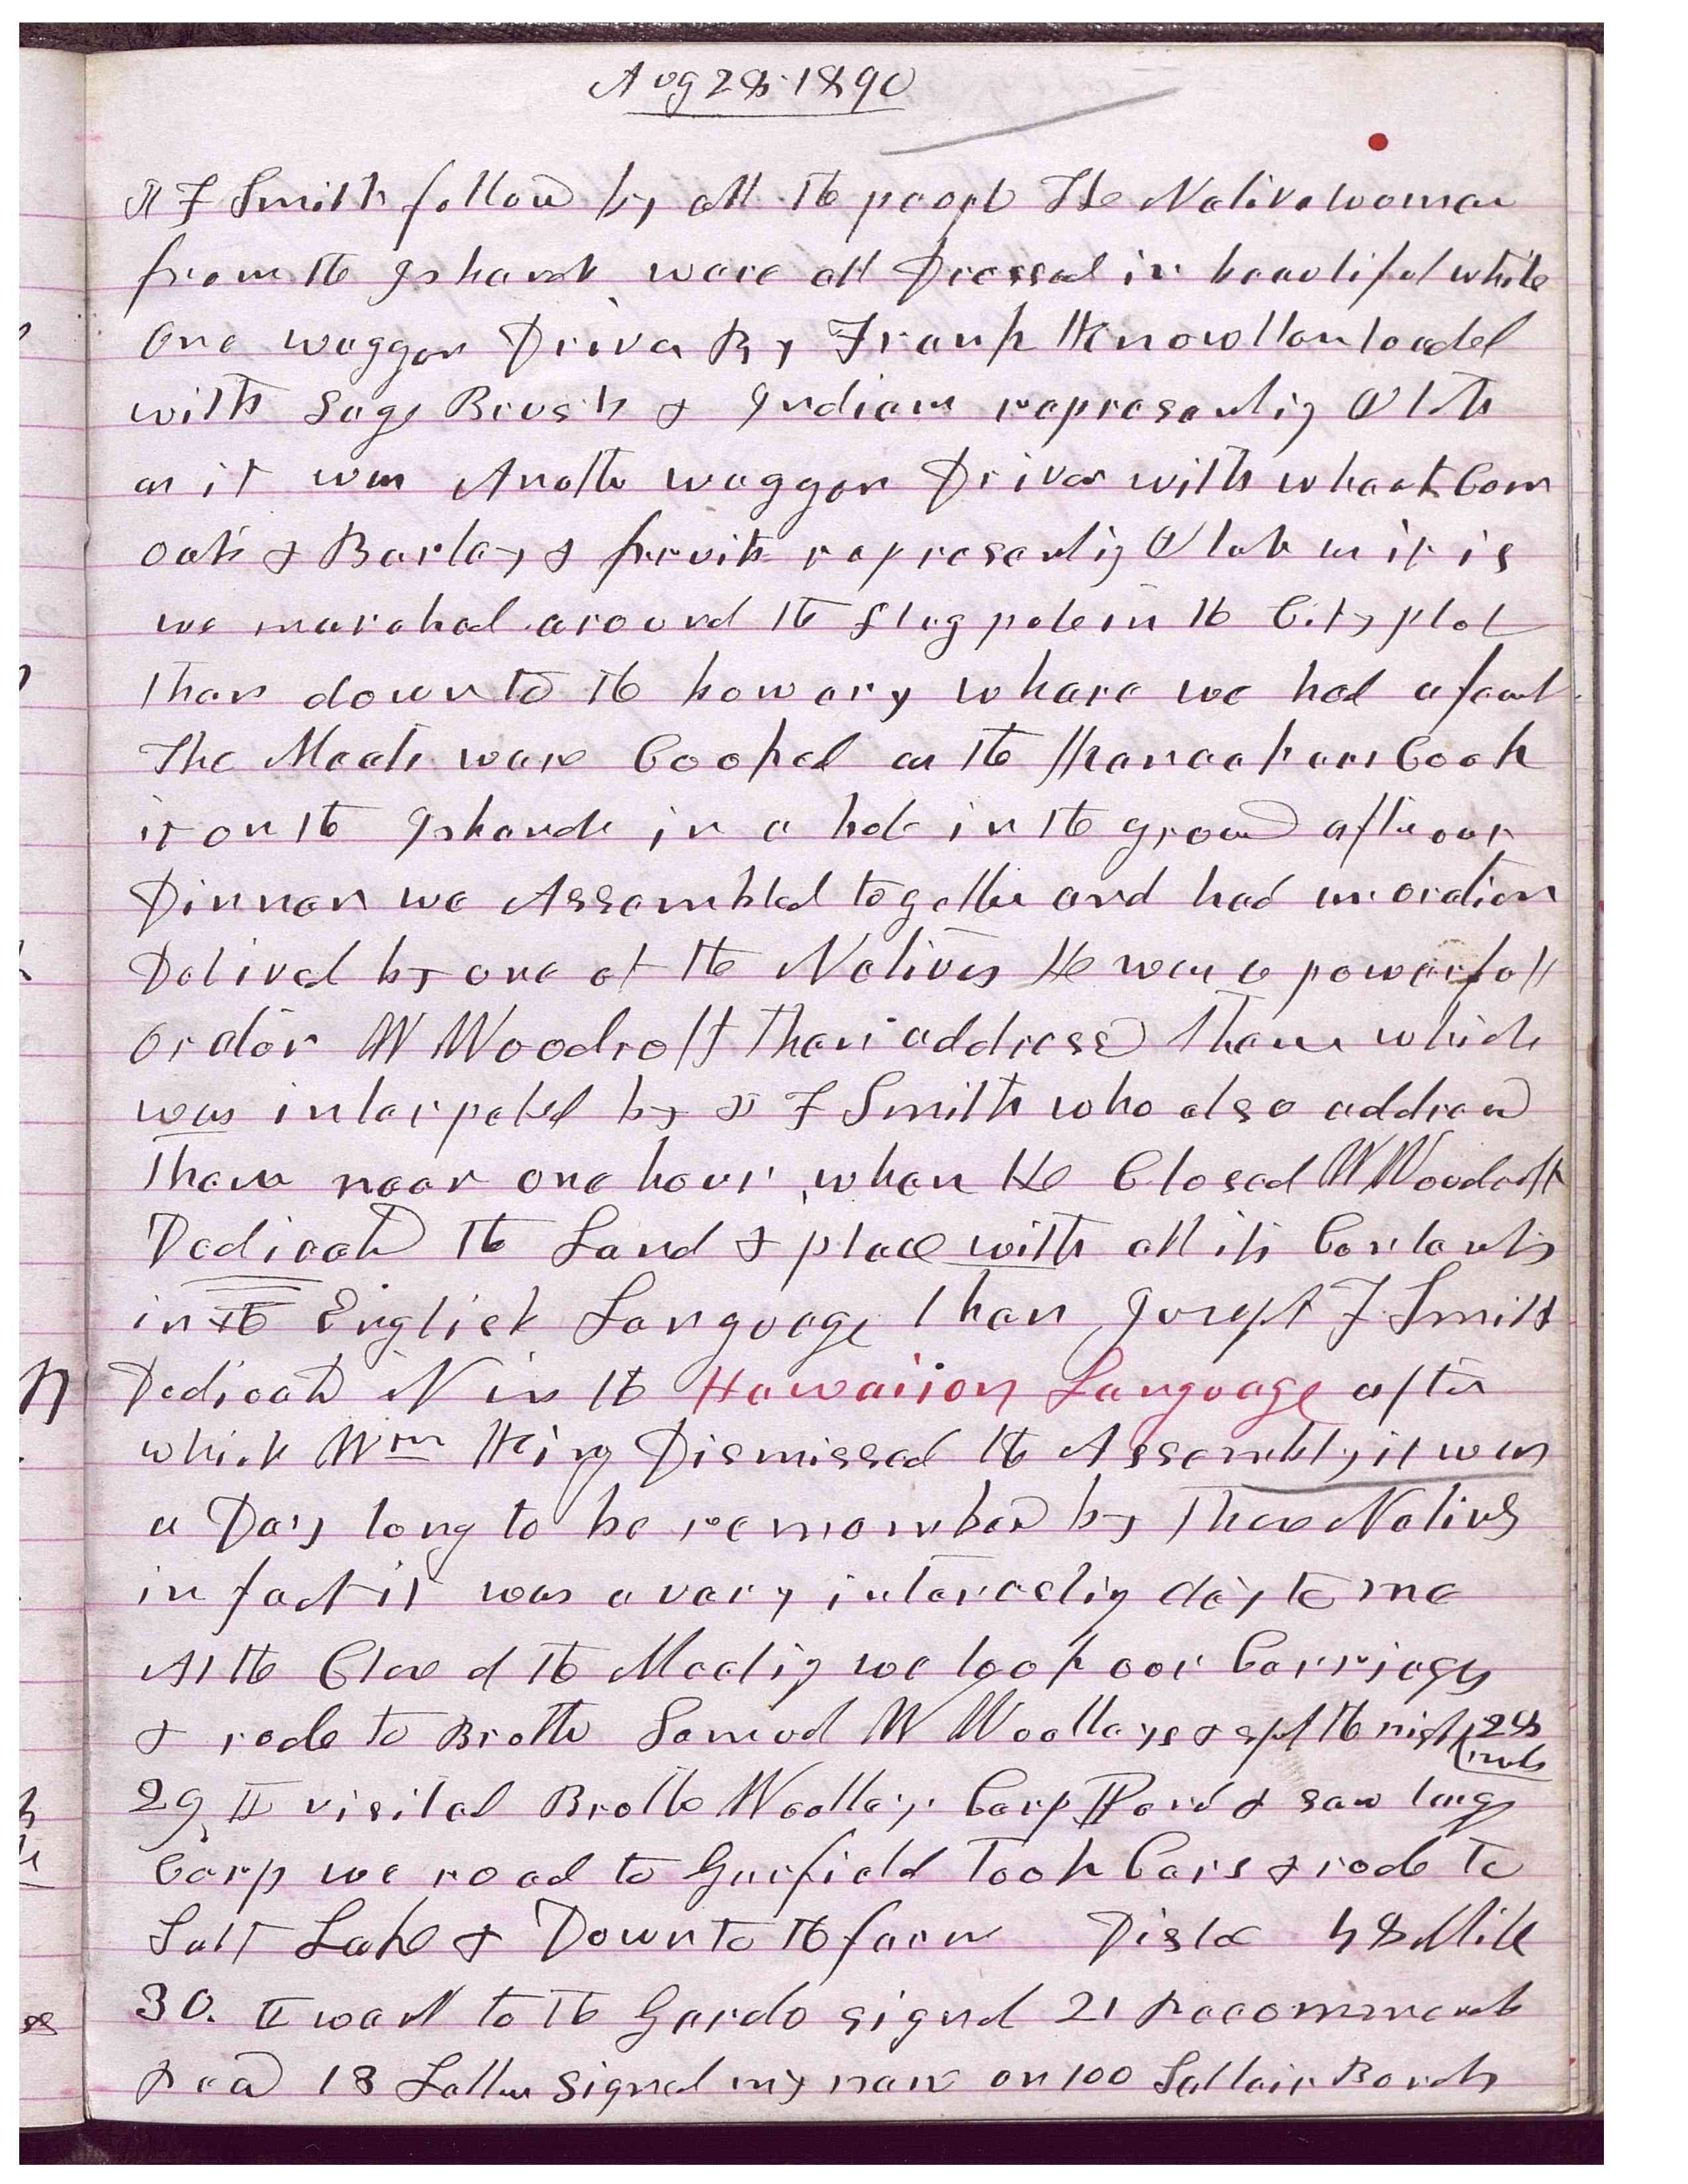 Aug 28 1890
J F Smith followed by all the people The Native women
from the Islands ware all Dressed in beautiful white
One waggon Driven By Frank Knowlton loaded
with Sage Brush & Indians representing Utah
as it was Another waggon Driven with wheat Corn
oats & Barley & fruits representing Utah as it is
we marched around the flag pole in the City plot
then down to the bowery where we had a feast
The Meats ware Cooked as the Kanackans Cook
it on the Islands in a hole in the ground after our
Dinner we Assembled together and had an oration
Delived by one of the Natives He was a powerfull
orator W Woodruff then addressed them which
was interpeted by J F Smith who also addressed
them near one hour when He Closed W Woodruff
Dedicated the Land & place with all its Contents
in the English Language then Joseph F Smith
Dedicated it in the Hawaiion Language after
which Wm King Dismissed the Assembly it was
a Day long to be remembered by those Natives
in fact it was a very interesting day to me
At the Close of the Meeting we took our Carriages
& rode to Brother Samuel W Woolleys & spt the night 28
mls
29 I visited Brother Woolleys Carp Pond & saw large
Carp we road to Garfield Took Cars & rode to
Salt Lake & Down to the farm Distc 48 Mile
30. I went to the Gardo signed 21 Recommends
Read 18 Letters signed my name on 100 Saltair Bonds